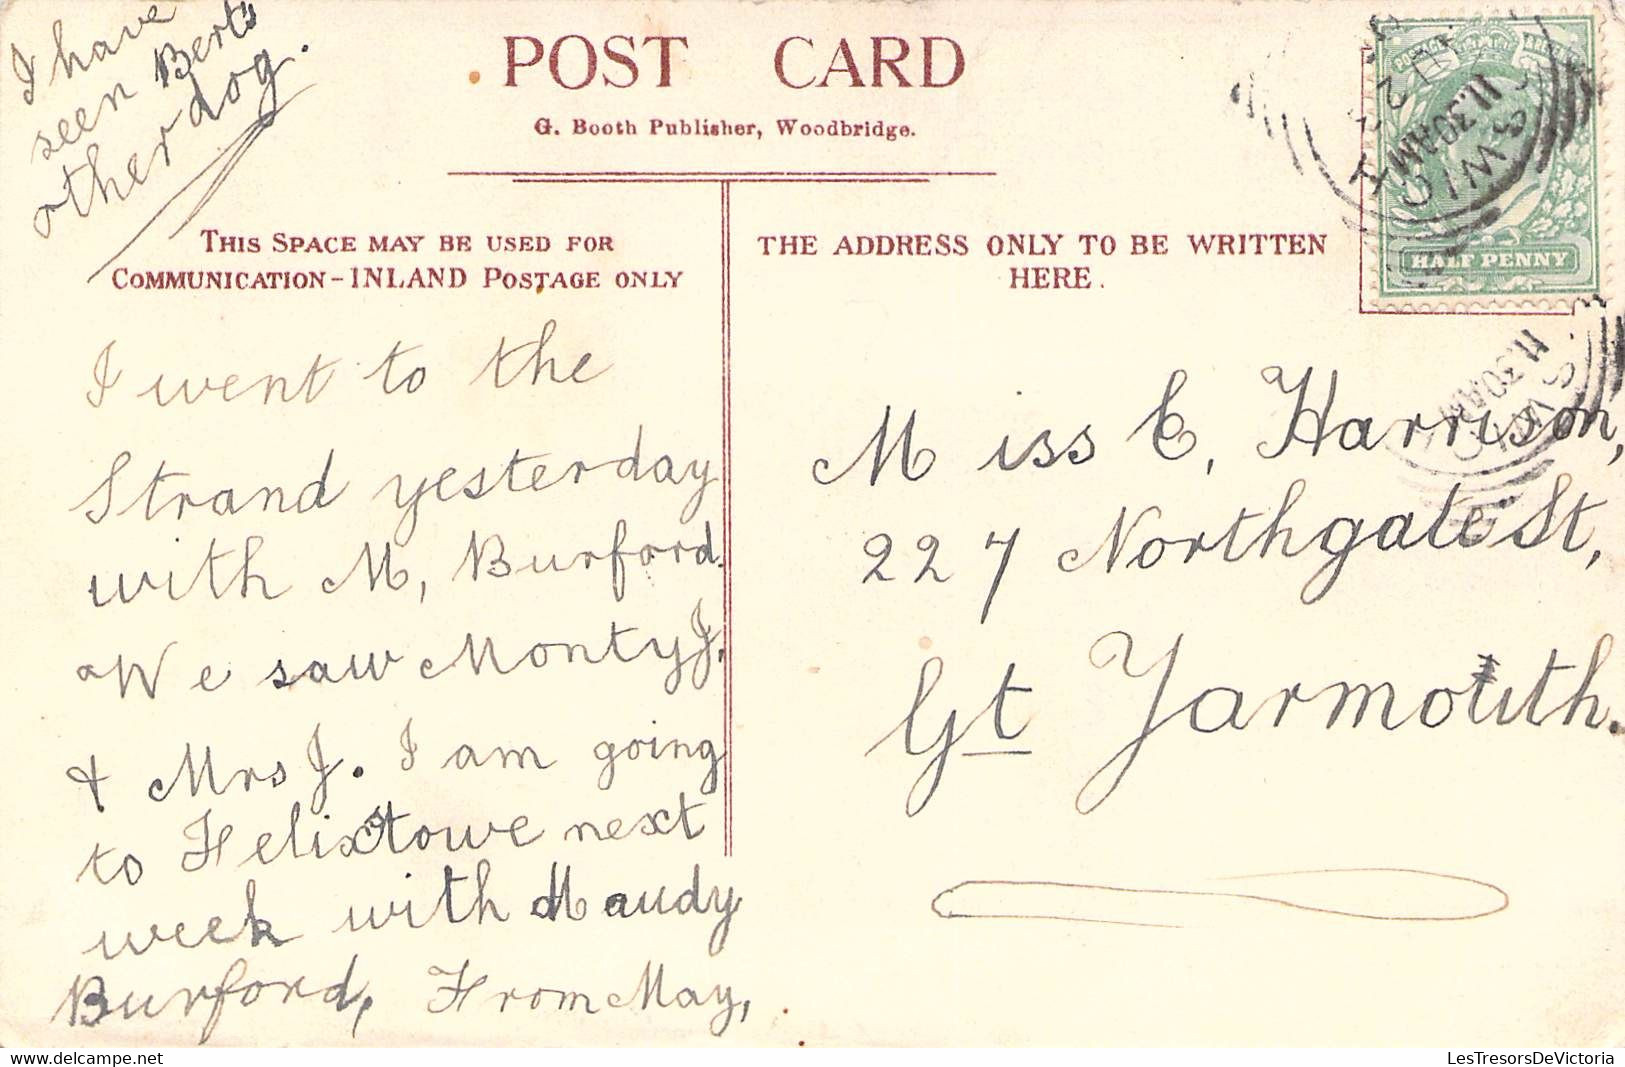 I have
seen Berts
other dog.
POST CARD
G. Booth Publisher, Woodbridge.
THIS SPACE MAY BE USED FOR
COMMUNICATION - INLAND POSTAGE ONLY
THE ADDRESS ONLY TO BE WRITTEN
HERE.
POSTAGE
HALF PENNY
11.30AM
11.30AM
I went to the
Strand yesterday
with M, Burford.
We saw Monty J,
& Mrs J. I am going
to Felixstowe next
week with Maudy
Burford, From May,
Miss E, Harrison,
227 Northgate St,
Gt Yarmouth.
LesTresorsDeVictoria